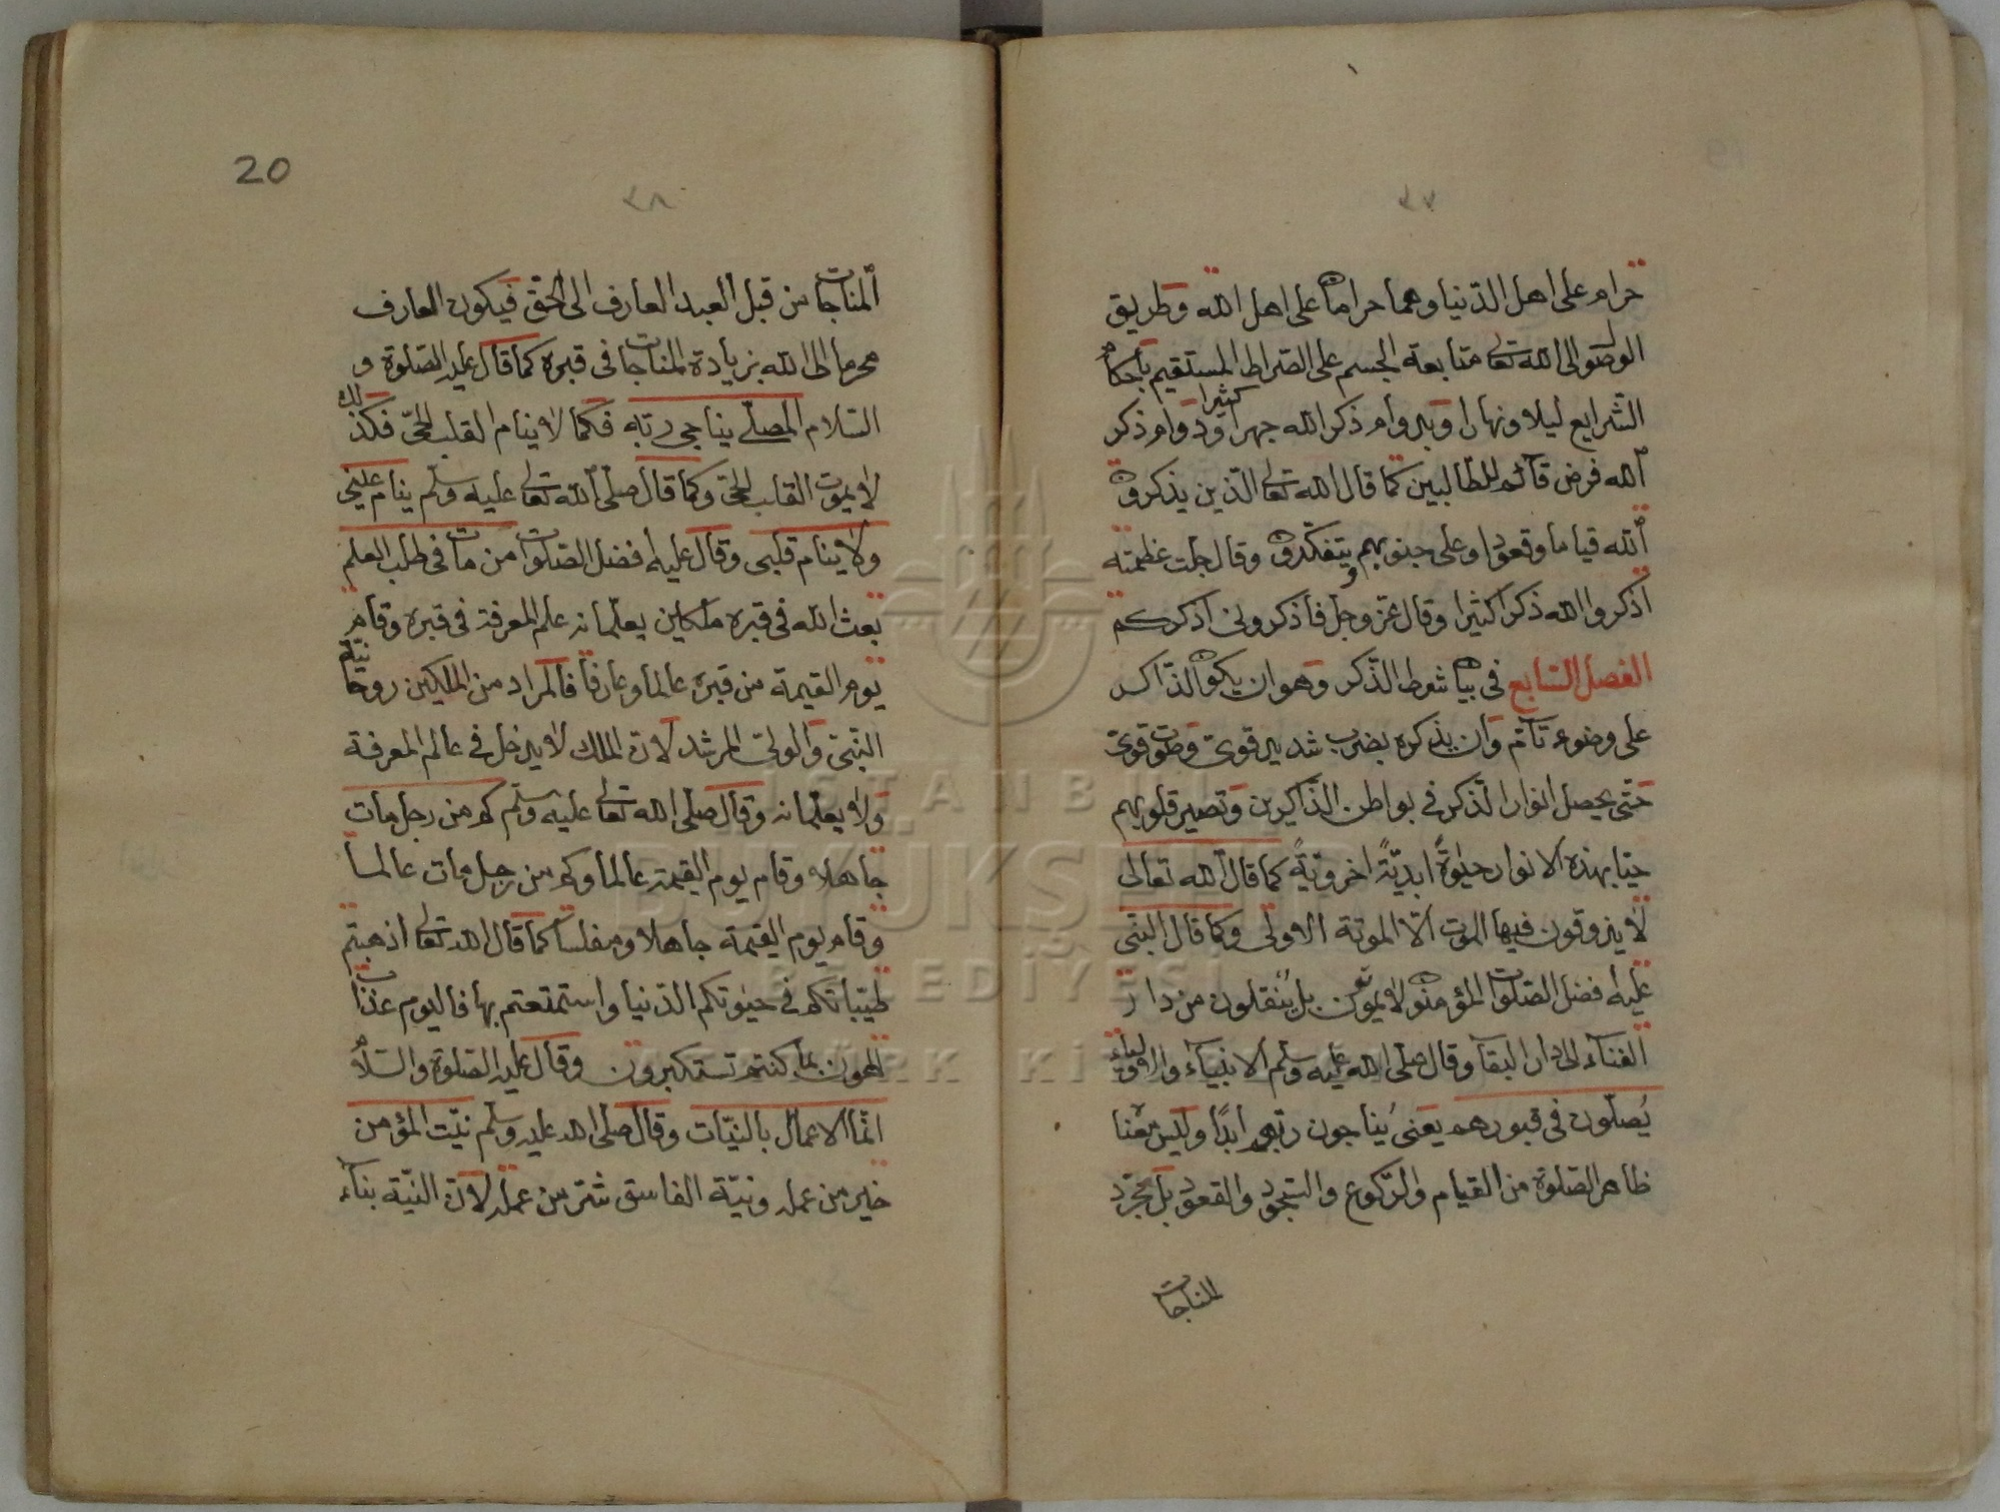 ٣٧
حرام على اهل الدّنيا وهما حرامان على اهل الله وطريق
الوصول الى الله تعالى متابعة الجسم على الصّراط المستقيم باحكام
الشّرايع ليلا ونهارا وبدوام ذكر الله جهرا كثيرا ودوام ذكر
الله فرض قائم للطّالبين كما قال الله تعالى الّذين يذكرون
الله قياما وقعودا وعلى جنوبهم ويتفكّرون وقال جلّت عظمته
اذكروا الله ذكرا كثيرا وقال عزّ وجلّ فاذكرونى اذكركم
الفصل السّابع فى بيان شرط الذّكر وهو ان يكون الذّاكر
على وضوء تامّ وان يذكره بضرب شديد قوىّ وصوت قوىّ
حتّى يحصل انوار الذّكر فى بواطن الذّاكرين وتصير قلوبهم
حيّا بهذه الانوار حيوةً ابديّةً اخرويّةً كما قال الله تعالى
لا يذوقون فيها الموت الّا الموتة الاولى وكما قال النّبى
عليه افضل الصّلوات المؤمنون لا يموتون بل يُنقلون من دار
الفناء الى دار البقاء وقال صلّى الله عليه وسلّم الانبياء والاولياء
يُصلّون فى قبورهم يعنى يُناجون ربّهم ابدًا وليس معنا
ظاهر الصّلوة من القيام والرّكوع والسّجود والقعود بل مجرّد
المناجات
20
٣٨
المناجات من قبل العبد العارف الى الحقّ فيكون العارف
محرما الى الله بزيادة المناجات فى قبره كما قال عليه الصّلوة و
السّلام المصلّى يناجى ربّه فكما لا ينام القلب الحىّ فكذلك
لا يموت القلب الحىّ وكما قال صلّى الله تعالى عليه وسلّم ينام عينى
ولا ينام قلبى وقال عليه افضل الصّلوات من مات فى طلب العلم
بعث الله فى قبره ملكين يعلّمانه علم المعرفة فى قبره وقام
يوم القيمة من قبره عالما وعارفا فالمراد من الملكين روحانيّة
النّبىّ والولىّ المرشد لانّ الملك لا يدخل فى عالم المعرفة
ولا يعلّمانه وقال صلّى الله تعالى عليه وسلّم كم من رجل مات
جاهلا وقام يوم القيمة عالما وكم من رجل مات عالما
وقام يوم القيمة جاهلا ومفلسا كما قال الله تعالى اذهبتم
طيّباتكم فى حيوتكم الدّنيا واستمتعتم بها فاليوم عذاب
الهون بما كنتم تستكبرون وقال عليه الصّلوة والسّلام
انّما الاعمال بالنّيّات وقال صلّى الله عليه وسلّم نيّت المؤمن
خير من عمله ونيّة الفاسق شرّ من عمله لانّ النّيّة بناء
ISTANBUL
BÜYÜKŞEHİR
BELEDİYESİ